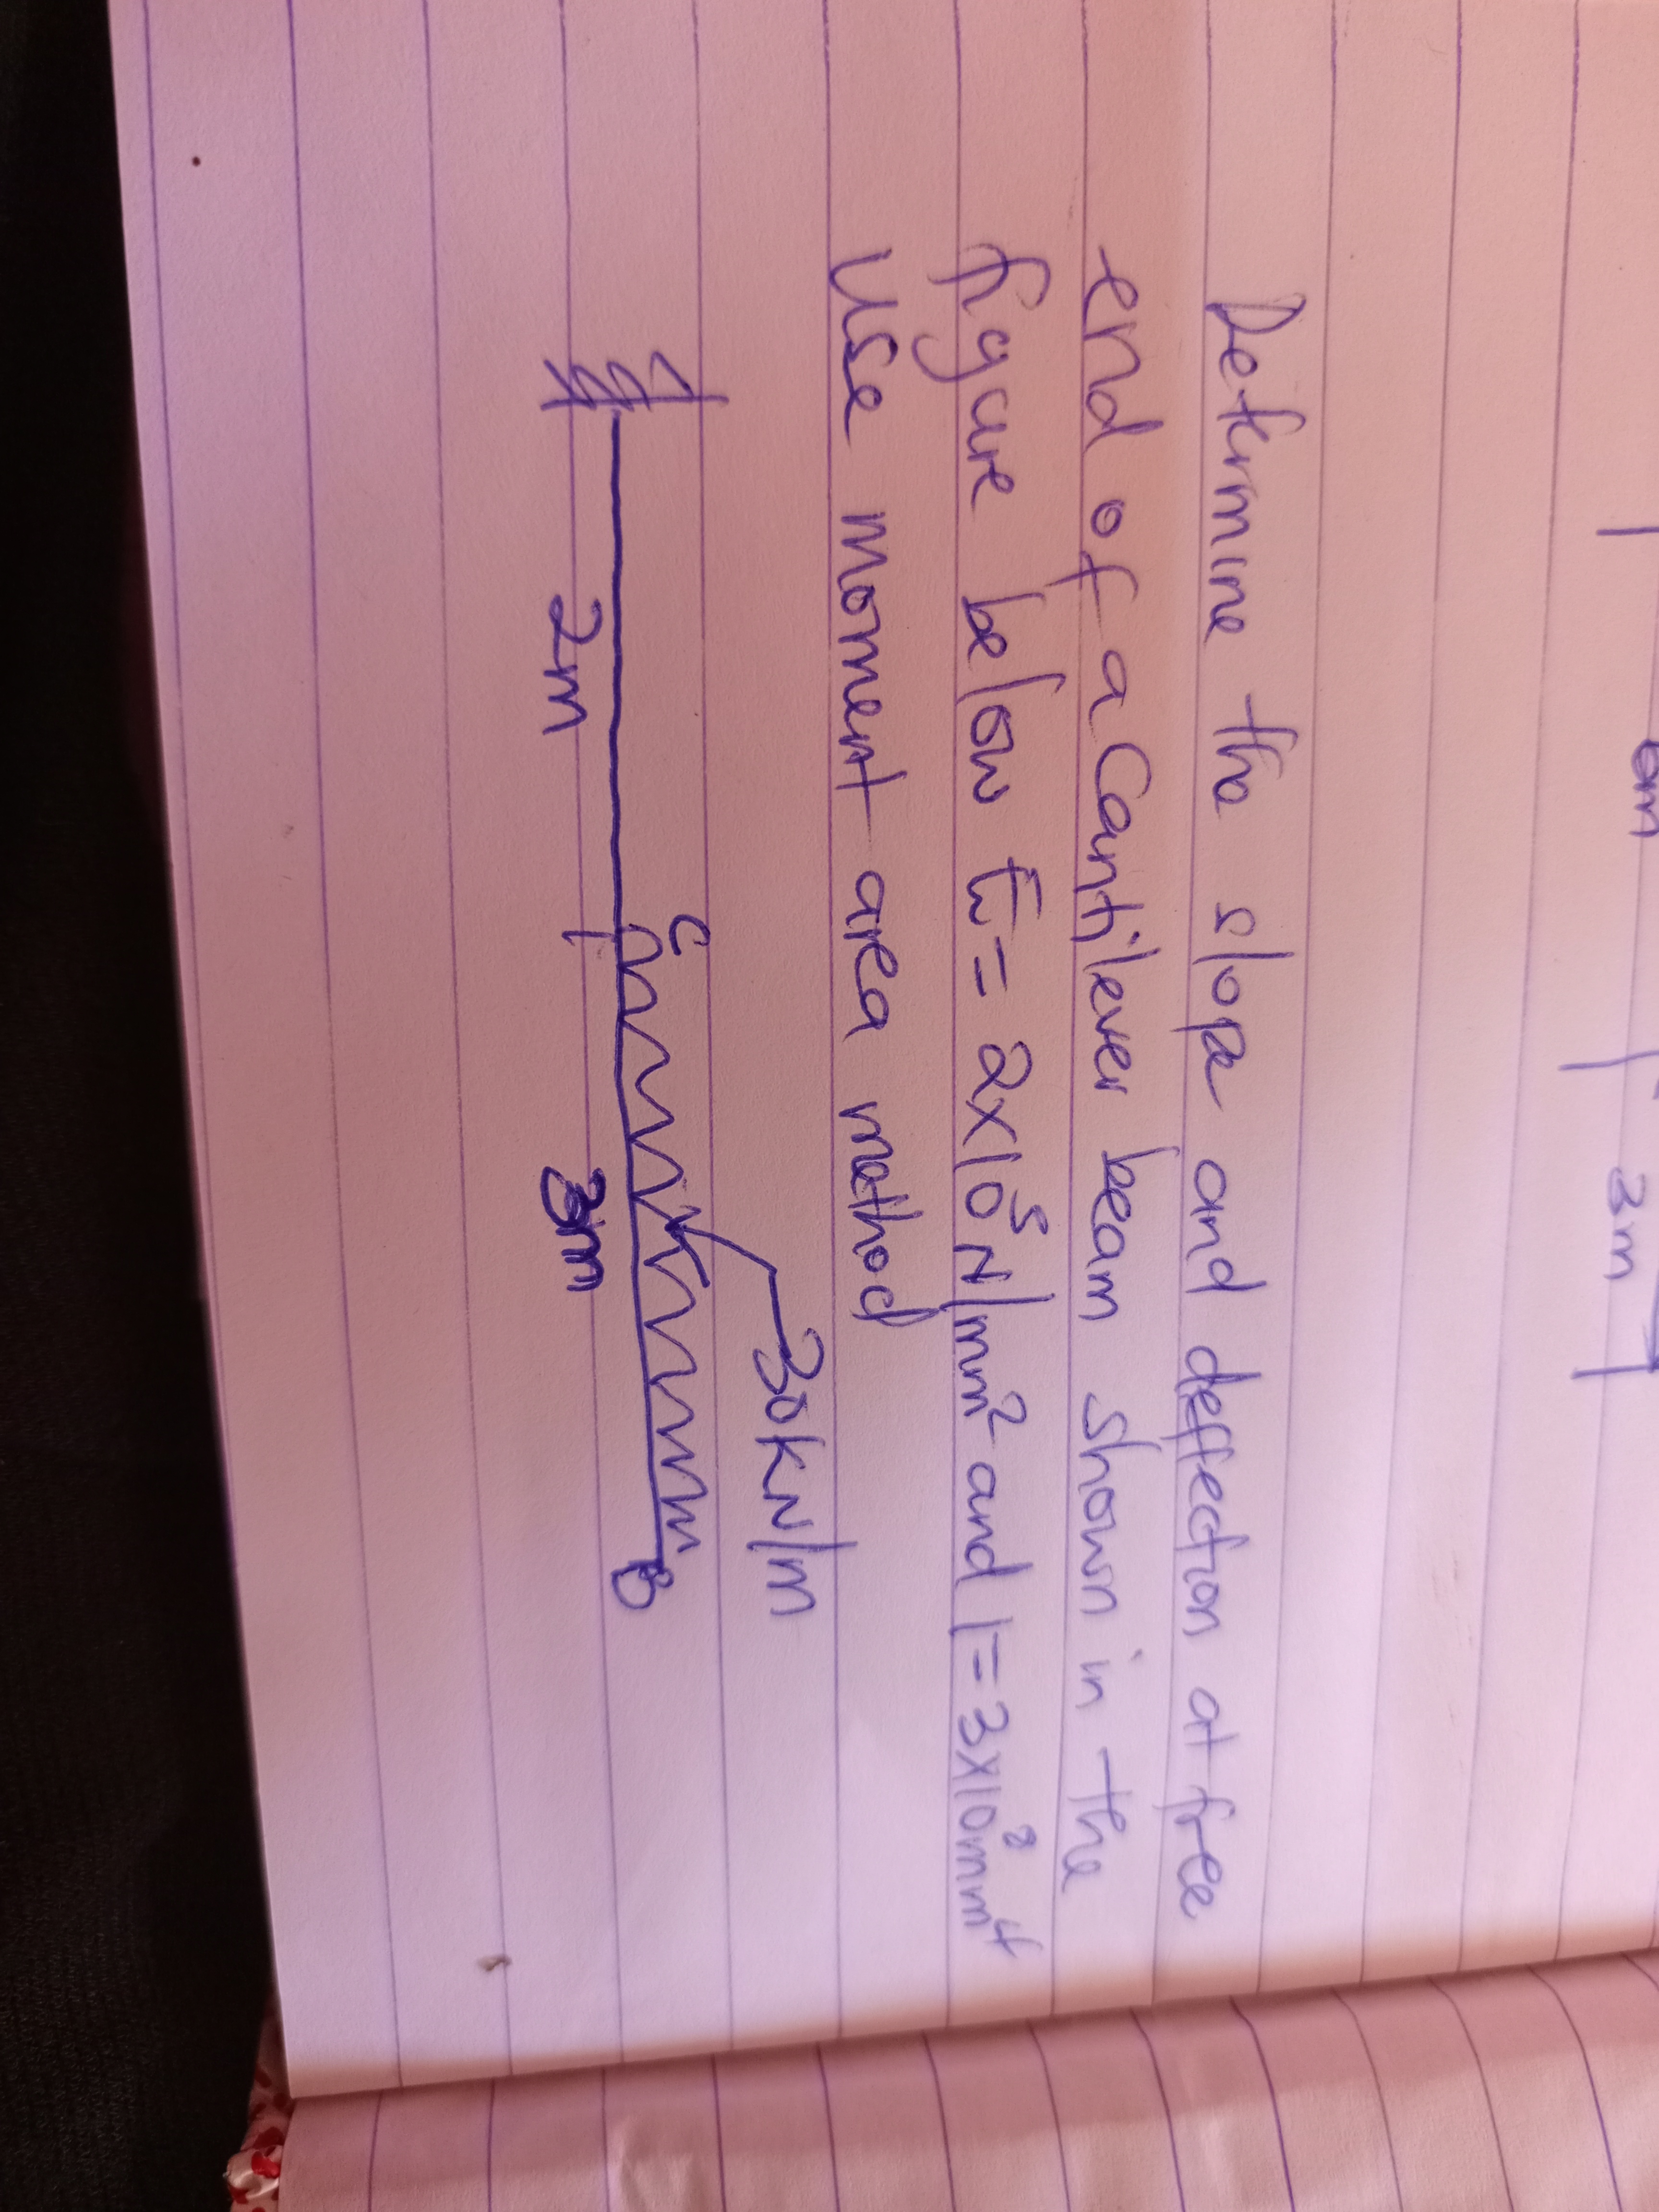 6m
3m
Determine the slope and deffection at free
end of a Cantilever beam shown in the
figure below E = 2x10⁵N/mm² and I = 3x10⁸mm⁴
Use moment area method
30kN/m
C
B
2m
3m